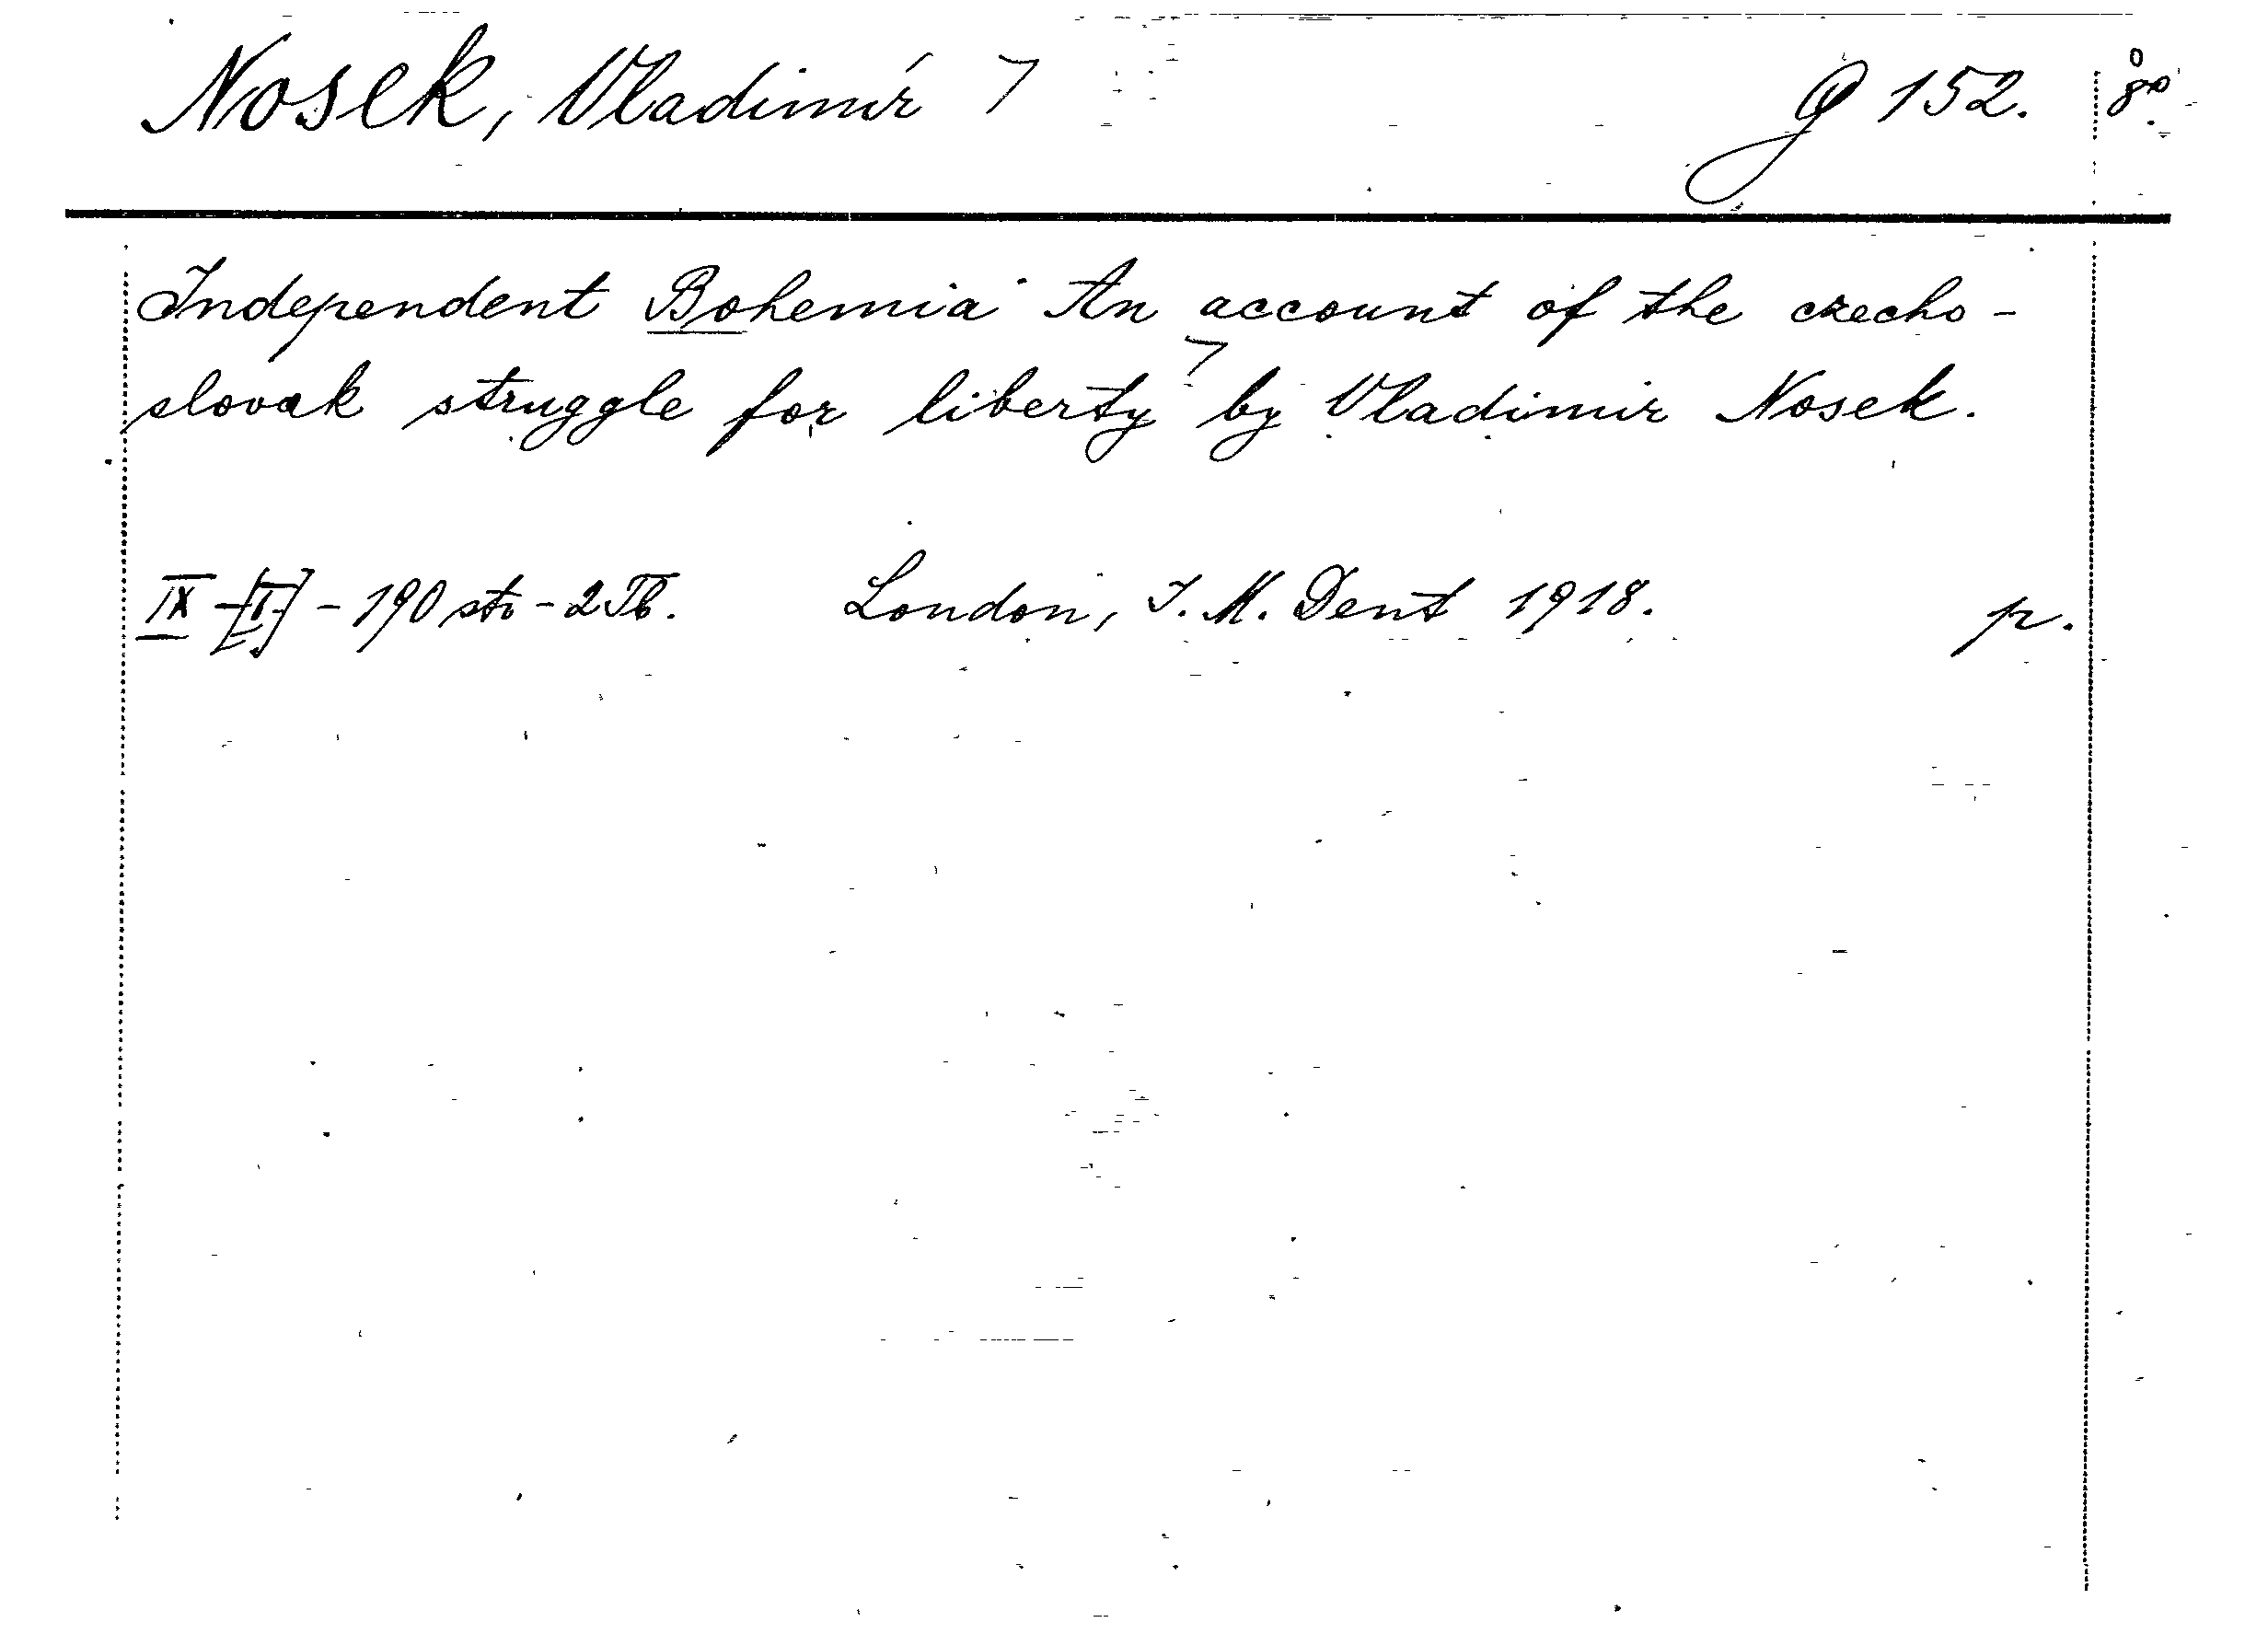 Nosek, Vladimír g 152. 8°.
Independent Bohemia An account of the czecho-
slovak struggle for liberty by Vladimir Nosek.
IX-[I]-190 str-2Tb. London, J. M. Dent 1918. p.